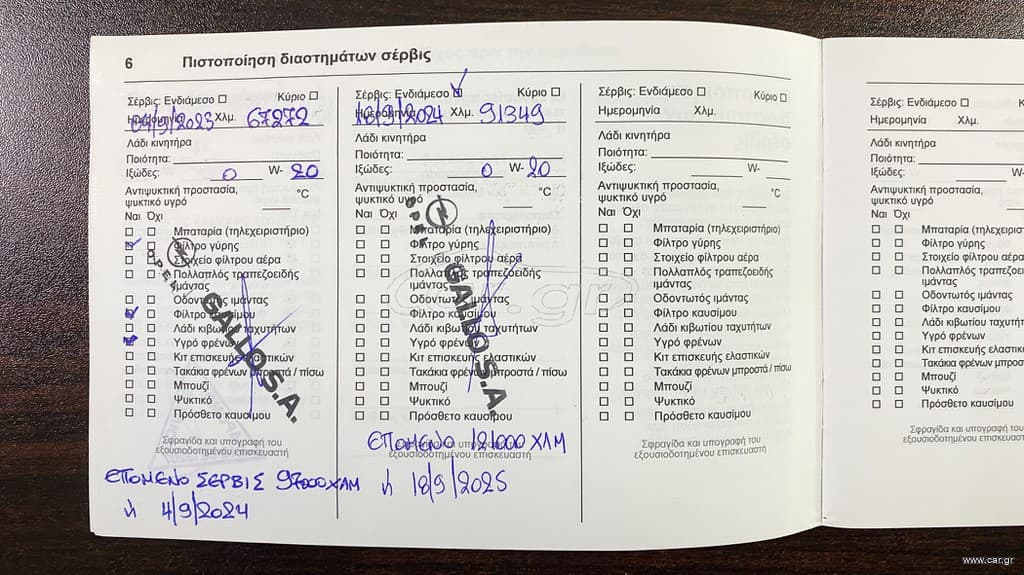 6 Πιστοποίηση διαστημάτων σέρβις
Σέρβις: Ενδιάμεσο Κύριο
Ημερομηνία 04/9/2023 Χλμ. 67272
Λάδι κινητήρα
Ποιότητα:
Ιξώδες: 0 W- 20
Αντιψυκτική προστασία,
ψυκτικό υγρό °C
Ναι Όχι
Μπαταρία (τηλεχειριστήριο)
Φίλτρο γύρης
Στοιχείο φίλτρου αέρα
Πολλαπλός τραπεζοειδής
ιμάντας
Οδοντωτός ιμάντας
Φίλτρο καυσίμου
Λάδι κιβωτίου ταχυτήτων
Υγρό φρένων
Κιτ επισκευής ελαστικών
Τακάκια φρένων μπροστά / πίσω
Μπουζί
Ψυκτικό
Πρόσθετο καυσίμου
OPEL
GALLO S.A.
Σφραγίδα και υπογραφή του
εξουσιοδοτημένου επισκευαστή
ΕΠΟΜΕΝΟ ΣΕΡΒΙΣ 97000 ΧΛΜ
ή 4/9/2024
Σέρβις: Ενδιάμεσο Κύριο
Ημερομηνία 18/9/2024 Χλμ. 91349
Λάδι κινητήρα
Ποιότητα:
Ιξώδες: 0 W- 20
Αντιψυκτική προστασία,
ψυκτικό υγρό °C
Ναι Όχι
Μπαταρία (τηλεχειριστήριο)
Φίλτρο γύρης
Στοιχείο φίλτρου αέρα
Πολλαπλός τραπεζοειδής
ιμάντας
Οδοντωτός ιμάντας
Φίλτρο καυσίμου
Λάδι κιβωτίου ταχυτήτων
Υγρό φρένων
Κιτ επισκευής ελαστικών
Τακάκια φρένων μπροστά / πίσω
Μπουζί
Ψυκτικό
Πρόσθετο καυσίμου
OPEL
GALLO S.A.
ΕΠΟΜΕΝΟ 121000 ΧΛΜ
Σφραγίδα και υπογραφή του
εξουσιοδοτημένου επισκευαστή
ή 18/9/2025
Σέρβις: Ενδιάμεσο Κύριο
Ημερομηνία Χλμ.
Λάδι κινητήρα
Ποιότητα:
Ιξώδες: W-
Αντιψυκτική προστασία,
ψυκτικό υγρό °C
Ναι Όχι
Μπαταρία (τηλεχειριστήριο)
Φίλτρο γύρης
Στοιχείο φίλτρου αέρα
Πολλαπλός τραπεζοειδής
ιμάντας
Οδοντωτός ιμάντας
Φίλτρο καυσίμου
Λάδι κιβωτίου ταχυτήτων
Υγρό φρένων
Κιτ επισκευής ελαστικών
Τακάκια φρένων μπροστά / πίσω
Μπουζί
Ψυκτικό
Πρόσθετο καυσίμου
Σφραγίδα και υπογραφή του
εξουσιοδοτημένου επισκευαστή
Σέρβις: Ενδιάμεσο
Ημερομηνία Χλμ.
Λάδι κινητήρα
Ποιότητα:
Ιξώδες:
Αντιψυκτική προστασία,
ψυκτικό υγρό
Ναι Όχι
Μπαταρία
Φίλτρο γύρης
Στοιχείο φίλτρου
Πολλαπλός
ιμάντας
Οδοντωτός ιμάντας
Φίλτρο καυσίμου
Λάδι κιβωτίου
Υγρό φρένων
Κιτ επισκευής
Τακάκια φρένων
Μπουζί
Ψυκτικό
Πρόσθετο καυσίμου
Σφραγίδα και
εξουσιοδοτημένου
car.gr
www.car.gr